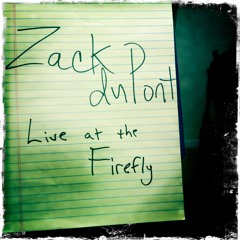 Zack
duPont
Live at the
Firefly